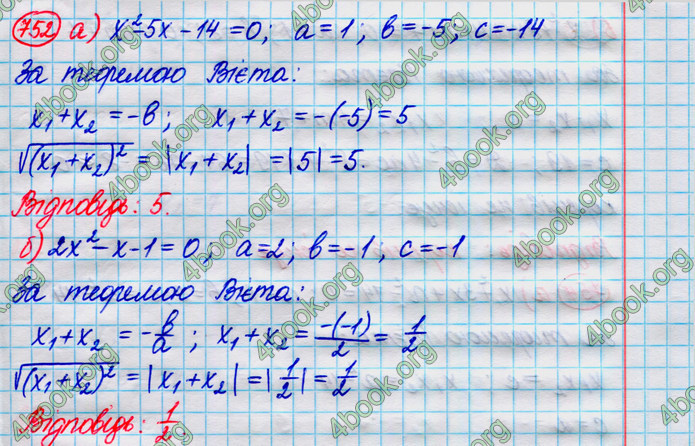 752 а) x²-5x-14=0; a=1; b=-5; c=-14
За теоремою Вієта:
x₁+x₂=-b; x₁+x₂=-(-5)=5
√(x₁+x₂)² = |x₁+x₂| =|5|=5.
Відповідь: 5.
б) 2x²-x-1=0; a=2; b=-1; c=-1
За теоремою Вієта:
x₁+x₂ = -b/a; x₁+x₂ = -(-1)/2 = 1/2
√(x₁+x₂)² = |x₁+x₂| = |1/2| = 1/2
Відповідь: 1/2
4book.org